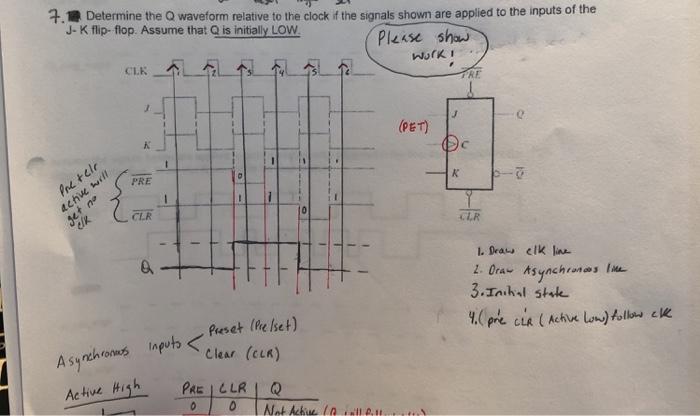 7. Determine the Q waveform relative to the clock if the signals shown are applied to the inputs of the
J- K flip- flop. Assume that Q is initially LOW.
Please show
work!
CLK 1 2 3 4 5 6
J
K
PRE 1 0 1 1
CLR 1 1 1 0 1
Pre + clr
active will
get no
clk
Q
(PET)
PRE
J Q
C
K Q
CLR
1. Draw clk line
2. Draw Asynchronous line
3. Initial state
4. (pre CLR (Active Low) follow clk
Asynchronous inputs < Preset (Pre/set)
Clear (CLR)
Active High
PRE CLR Q
0 0 Not Active